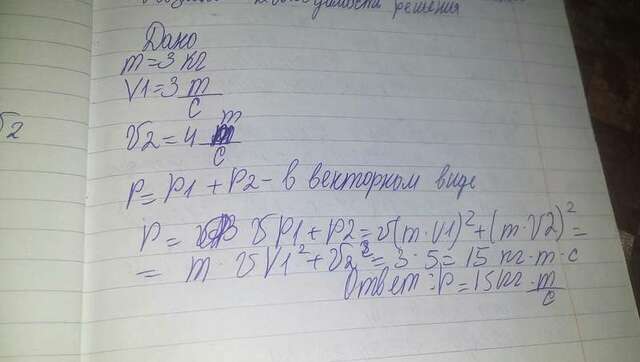 решения
Дано
m=3 кг
V1=3 m/c
V2
V2=4 m/c
P=P1+P2-в векторном виде
P= VP1+P2=V(m·V1)²+(m·V2)²=
= m·VV1²+V2²=3·5=15 кг·m·c
Ответ:p=15кг·m/c